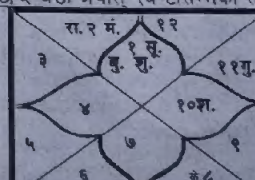 रा. २ मं. १२
१ सू.
३ बु. शु. ११गु.
४ १०श.
५ ७ ९
६ के ८